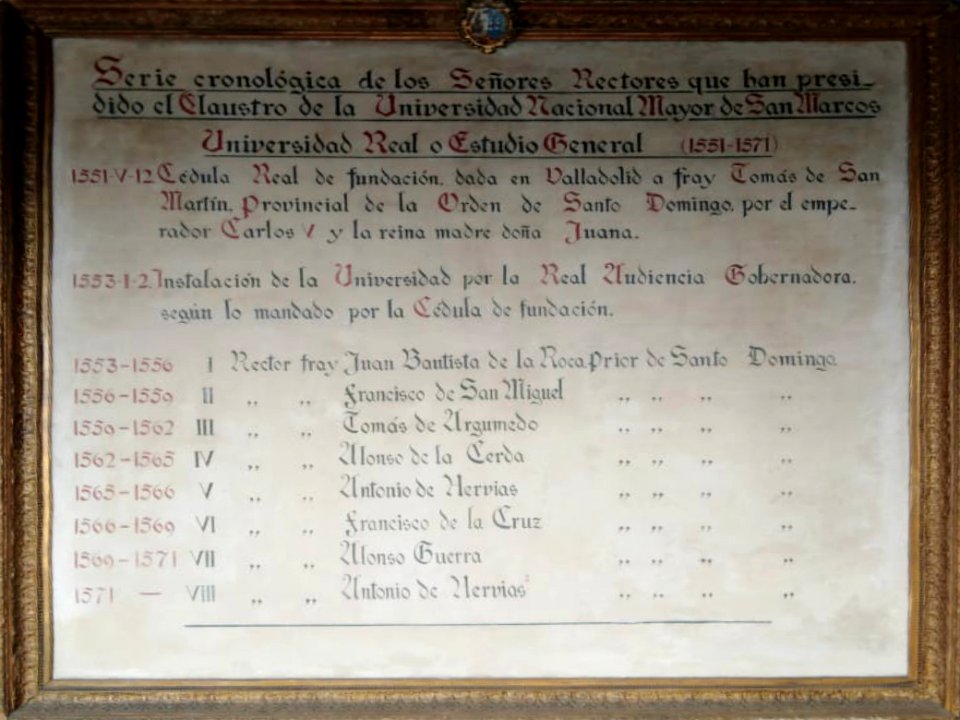 Serie cronológica de los Señores Rectores que han presi-
dido el Claustro de la Universidad Nacional Mayor de San Marcos
Universidad Real o Estudio General (1551-1571)
1551-V-12 Cédula Real de fundación, dada en Valladolid a fray Tomás de San
Martín, Provincial de la Orden de Santo Domingo, por el empe-
rador Carlos V y la reina madre doña Juana.
1553-I-2 Instalación de la Universidad por la Real Audiencia Gobernadora,
según lo mandado por la Cédula de fundación.
1553-1556 I Rector fray Juan Bautista de la Roca Prior de Santo Domingo
1556-1559 II ,, ,, Francisco de San Miguel ,, ,, ,, ,,
1559-1562 III ,, ,, Tomás de Argumedo ,, ,, ,, ,,
1562-1565 IV ,, ,, Alonso de la Cerda ,, ,, ,, ,,
1565-1566 V ,, ,, Antonio de Hervias ,, ,, ,, ,,
1566-1569 VI ,, ,, Francisco de la Cruz ,, ,, ,, ,,
1569-1571 VII ,, ,, Alonso Guerra ,, ,, ,, ,,
1571 — VIII ,, ,, Antonio de Hervias² ,, ,, ,, ,,